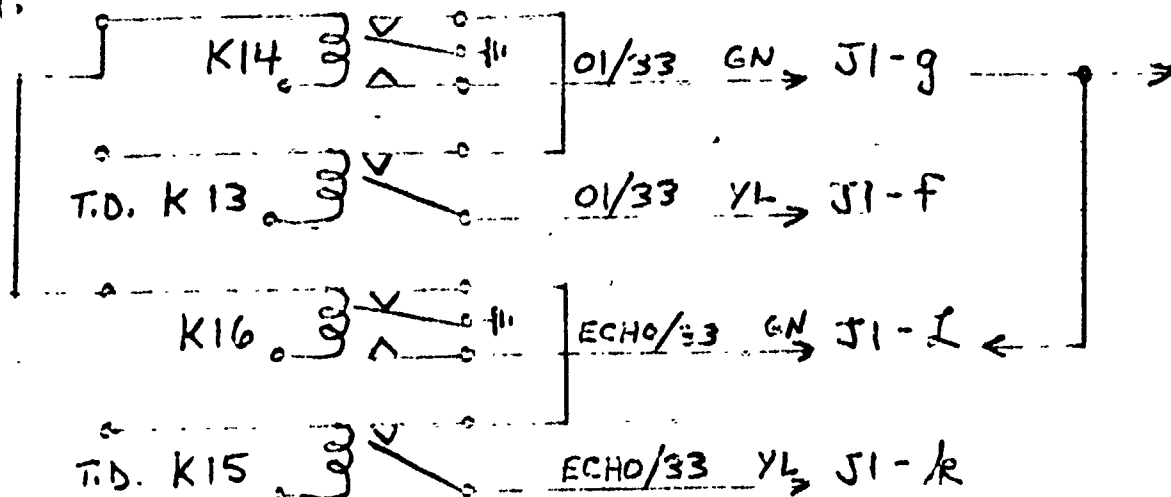 K14 01/33 GN J1-g
T.D. K13 01/33 YL J1-f
K16 ECHO/33 GN J1-L
T.D. K15 ECHO/33 YL J1-k